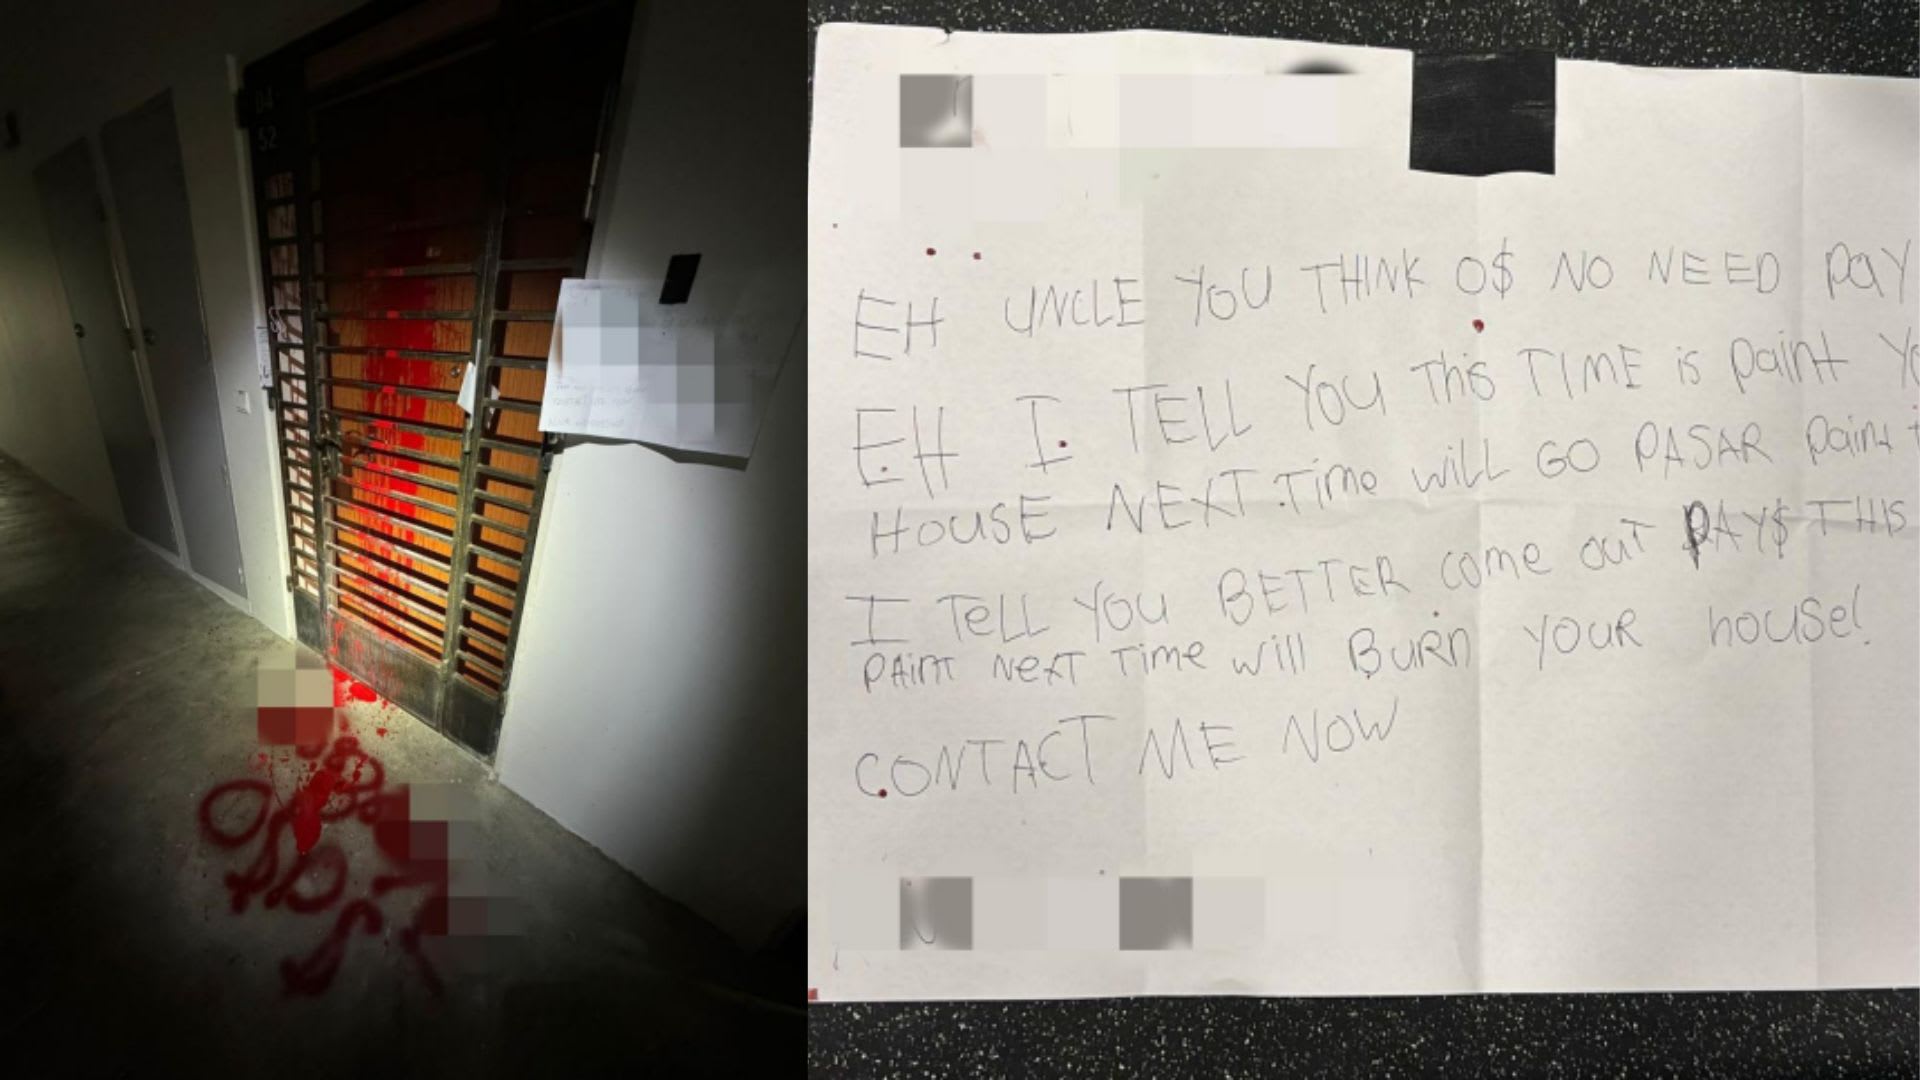 04
52
O$
P$
EH UNCLE YOU THINK O$ NO NEED PAY
EH I TELL YOU THIS TIME is Paint Yo
HOUSE NEXT Time will GO PASAR Paint t
I Tell YOU BETTER come out PAY$ THIS
PAint Next Time will Burn YOUR house!
CONTACT ME NOW